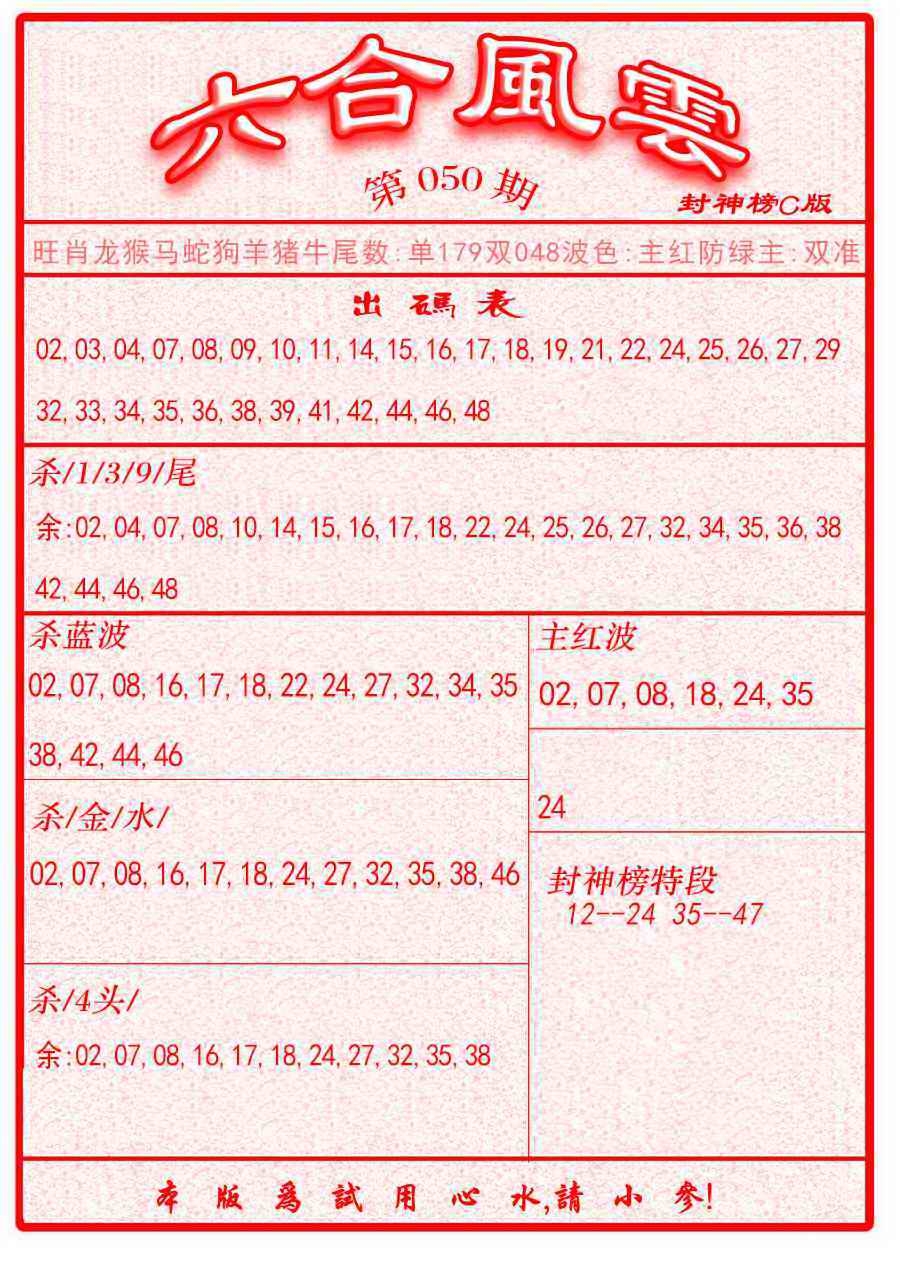 六合風雲
第 050 期
封神榜C版
旺肖龙猴马蛇狗羊猪牛尾数:单179双048波色:主红防绿主:双准
出碼表
02,03,04,07,08,09,10,11,14,15,16,17,18,19,21,22,24,25,26,27,29
32,33,34,35,36,38,39,41,42,44,46,48
杀/1/3/9/尾
余:02,04,07,08,10,14,15,16,17,18,22,24,25,26,27,32,34,35,36,38
42,44,46,48
杀蓝波
02,07,08,16,17,18,22,24,27,32,34,35
38,42,44,46
主红波
02,07,08,18,24,35
24
杀/金/水/
02,07,08,16,17,18,24,27,32,35,38,46
封神榜特段
12--24 35--47
杀/4头/
余:02,07,08,16,17,18,24,27,32,35,38
本版爲試用心水,請小參!